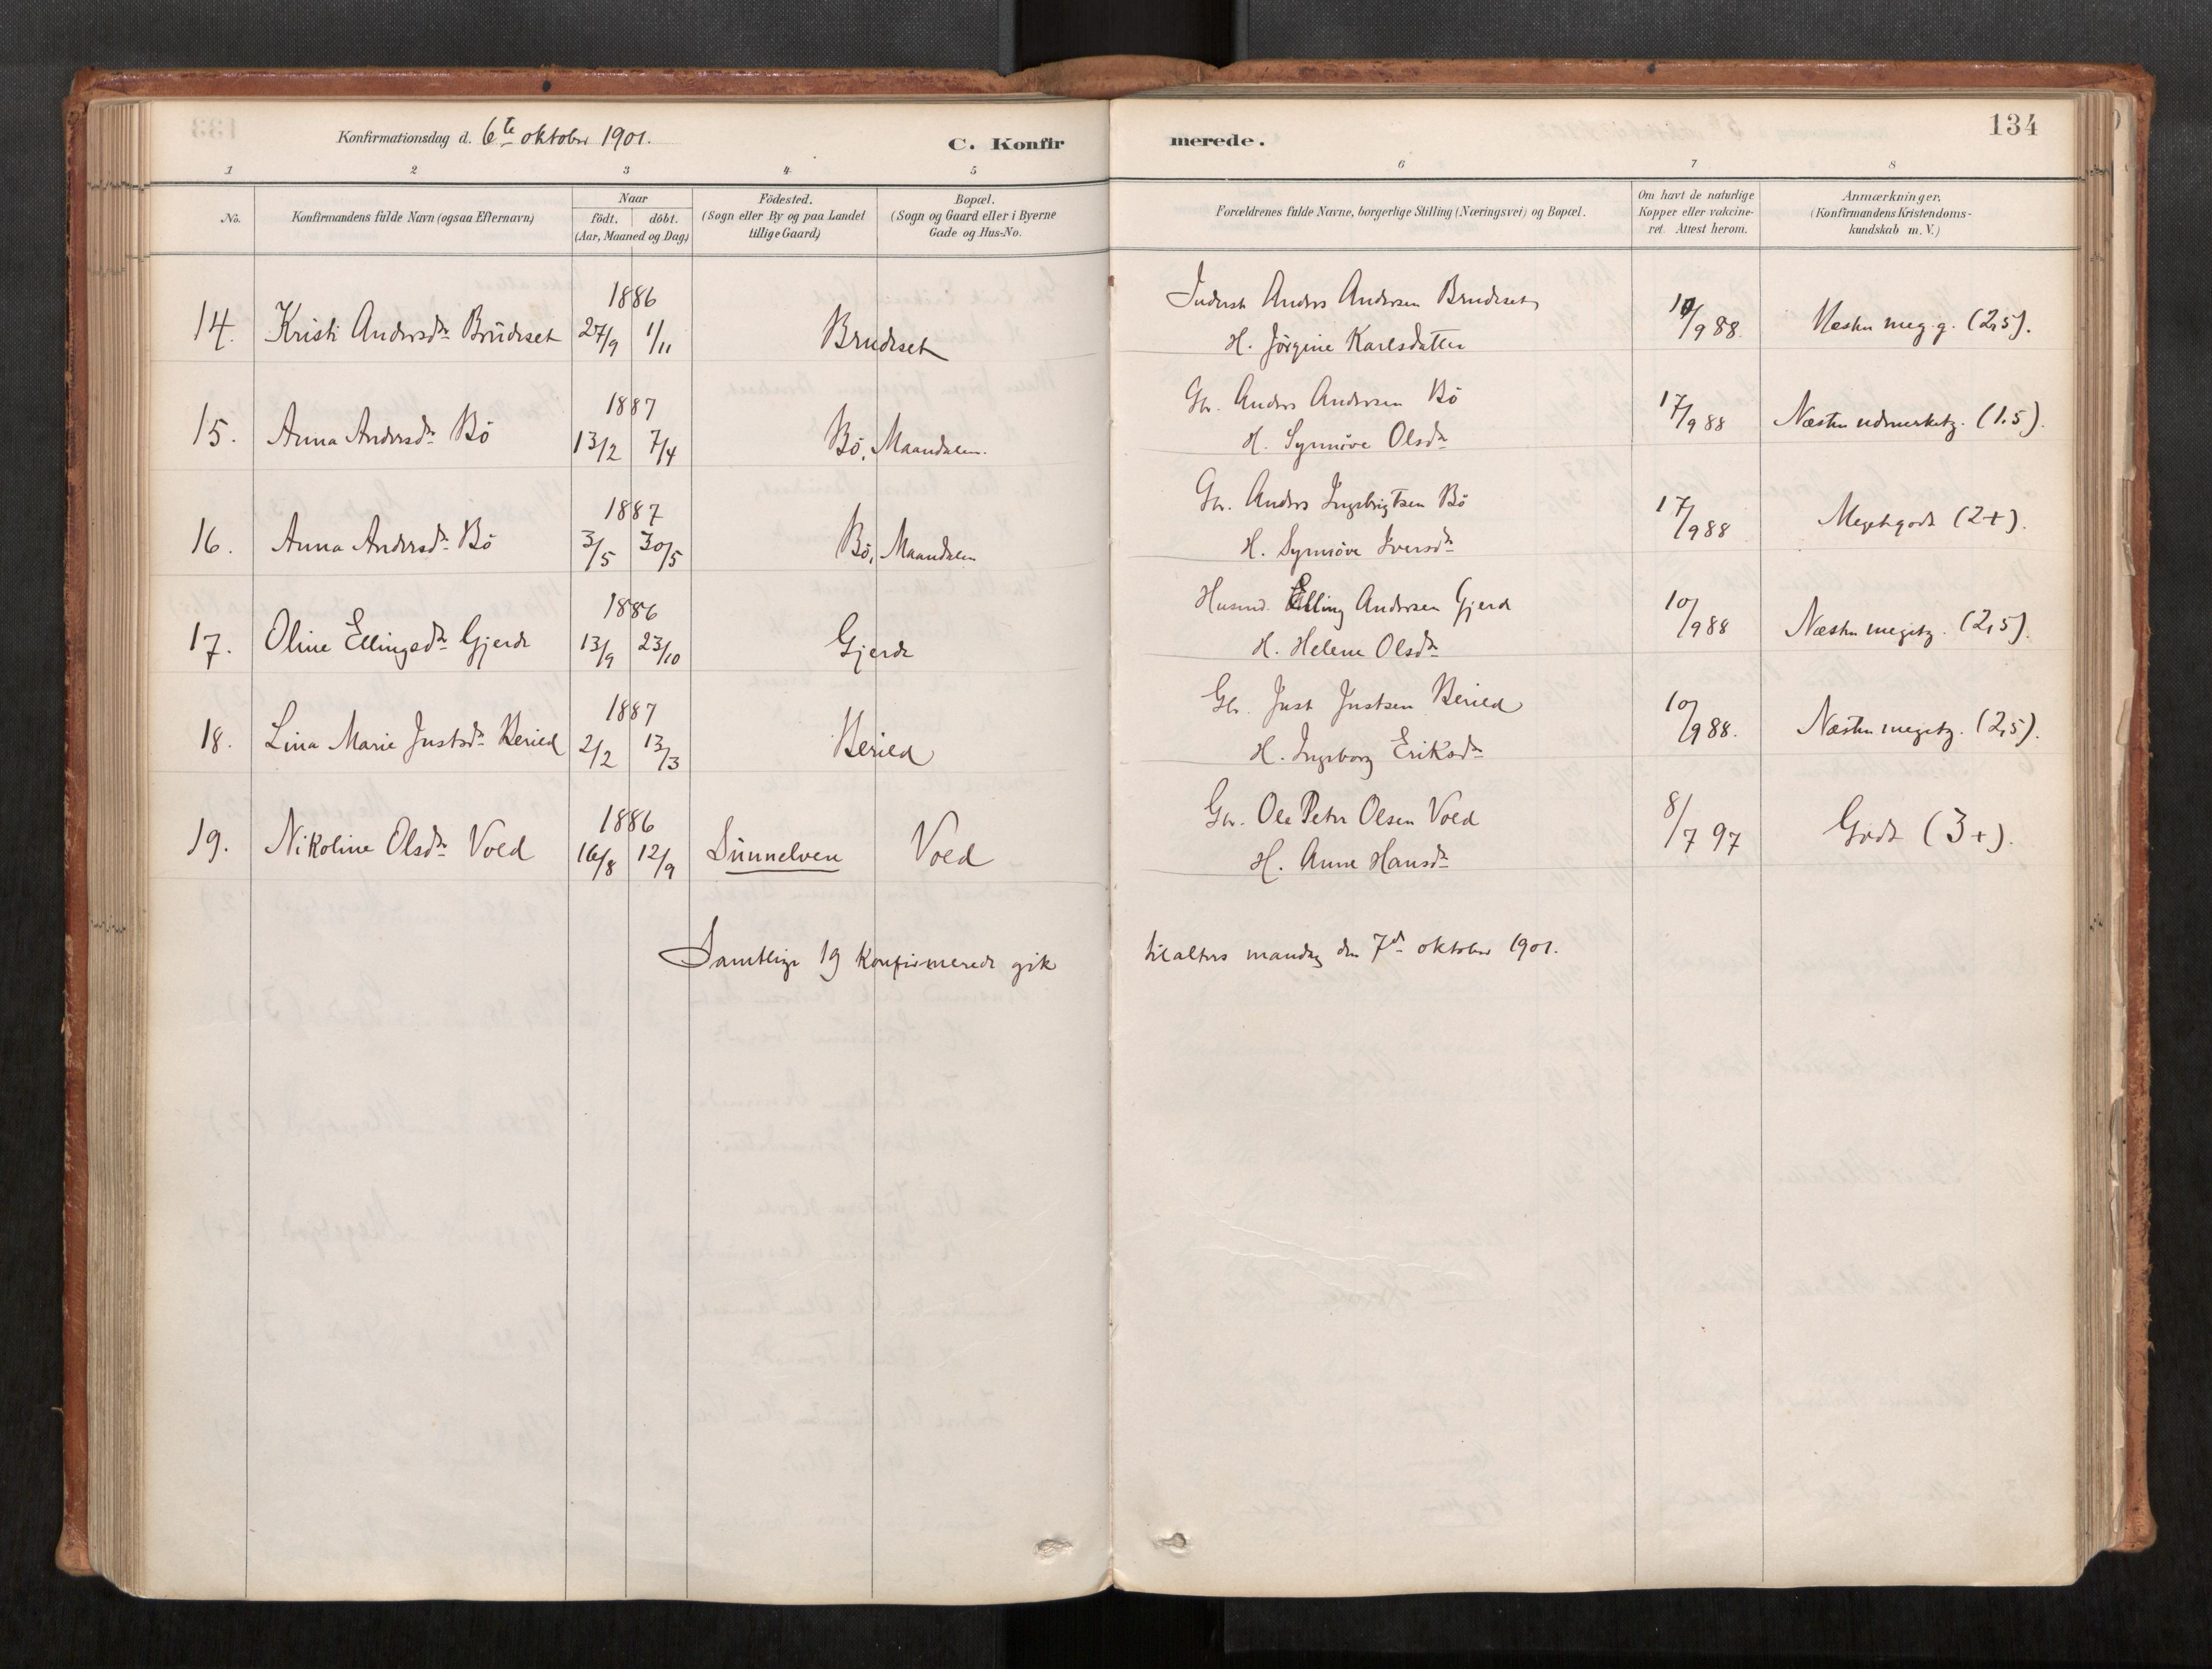 Konfirmationsdag d. 6te oktober 1901.
C. Konfirmerede.
134
1 2 3 4 5 6 7 8
No.
Konfirmandens fulde Navn (ogsaa Efternavn)
Naar
födt. döbt.
(Aar, Maaned og Dag)
Födested.
(Sogn eller By og paa Landet
tillige Gaard)
Bopæl.
(Sogn og Gaard eller i Byerne
Gade og Hus-No.
Forældrenes fulde Navne, borgerlige Stilling (Næringsvei) og Bopæl.
Om havt de naturlige
Kopper eller vakcine-
ret. Attest herom.
Anmærkninger.
(Konfirmandens Kristendoms-
kundskab m. V.)
1886
14. Kristi Andersdr Brüdeset 27/9 1/11 Brudeset
Inderst Anders Andersen Brudeset
H. Jörgine Karlsdatter
10/9 88. Næsten meg. g. (2,5).
1887
15. Anna Andersdr Bö 13/2 7/4 Bö, Maandalen.
Gbr. Anders Andersen Bö
H. Synnöve Olsdr
17/9 88 Næsten udmerketg. (1.5).
1887
16. Anna Andersdr Bö 3/5 30/5 Bö, Maandalen
Gbr. Anders Ingebrigtsen Bö
H. Synnöve Iversdr
17/9 88 Megetgodt (2+).
1886
17. Oline Ellingsdr Gjerde 13/9 23/10 Gjerde
Husmd. Elling Andersen Gjerde
H. Helene Olsdr
10/9 88 Næsten megetg. (2,5).
1887
18. Lina Marie Justsdr Heried 2/2 13/3 Heried
Gbr. Just Justsen Heried
H. Ingeborg Eriksdr
10/9 88. Næsten megetg. (2,5).
1886
19. Nikoline Olsdr Vold 16/8 12/9 Sünnelven Vold
Gbr. Ole Peter Olsen Vold
H. Anne Hansdr
8/7 97 Godt (3+).
Samtlige 19 Konfirmerede gik tilalters mandag den 7de oktober 1901.